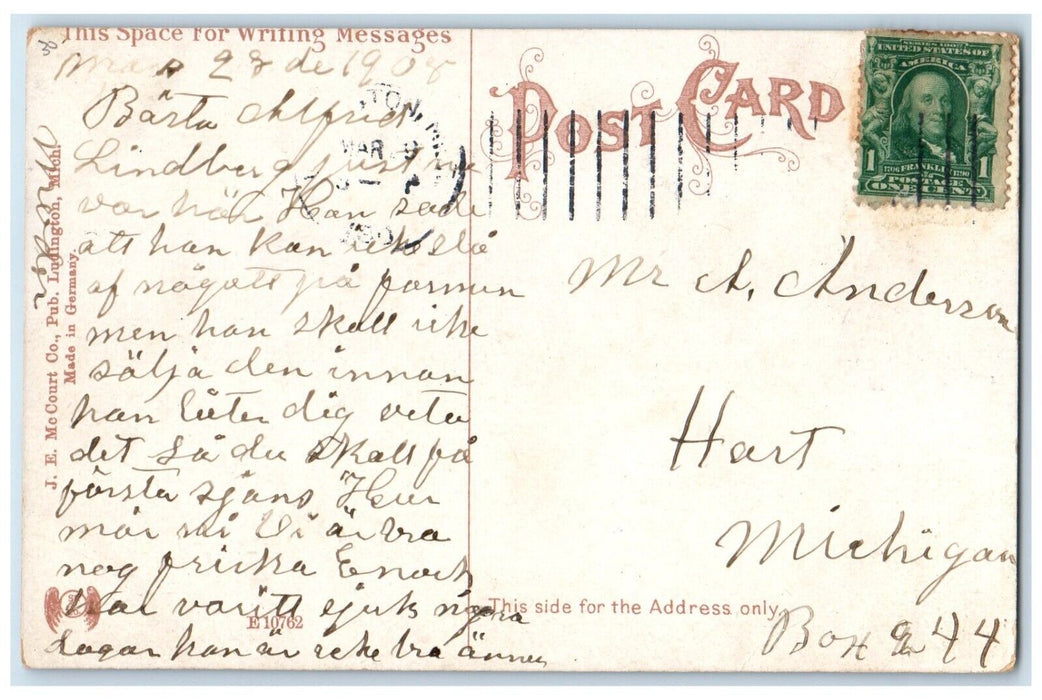 This Space For Writing Messages
Mars 28 de 1908
Bärta Alfrid
Lindberg just nu
var här Han sade
att han kan icke slå
af någott på farmen
men han skall icke
sälja den innan
han låter dig veta
det så du skall få
första sjans Hur
mår ni Vi är bra
nog friska Enock
har varitt sjuk några
dagar han är icke bra ännu
J. E. McCourt Co., Pub. Ludington, Mich.
Made in Germany.
E 10762
POST CARD
TON, MI
MAR
SERIES 1902
UNITED STATES OF
AMERICA
1706 FRANKLIN 1790
1 POSTAGE 1
ONE CENT
Mr A. Anderson
Hart
Michigan
Box 44
This side for the Address only.